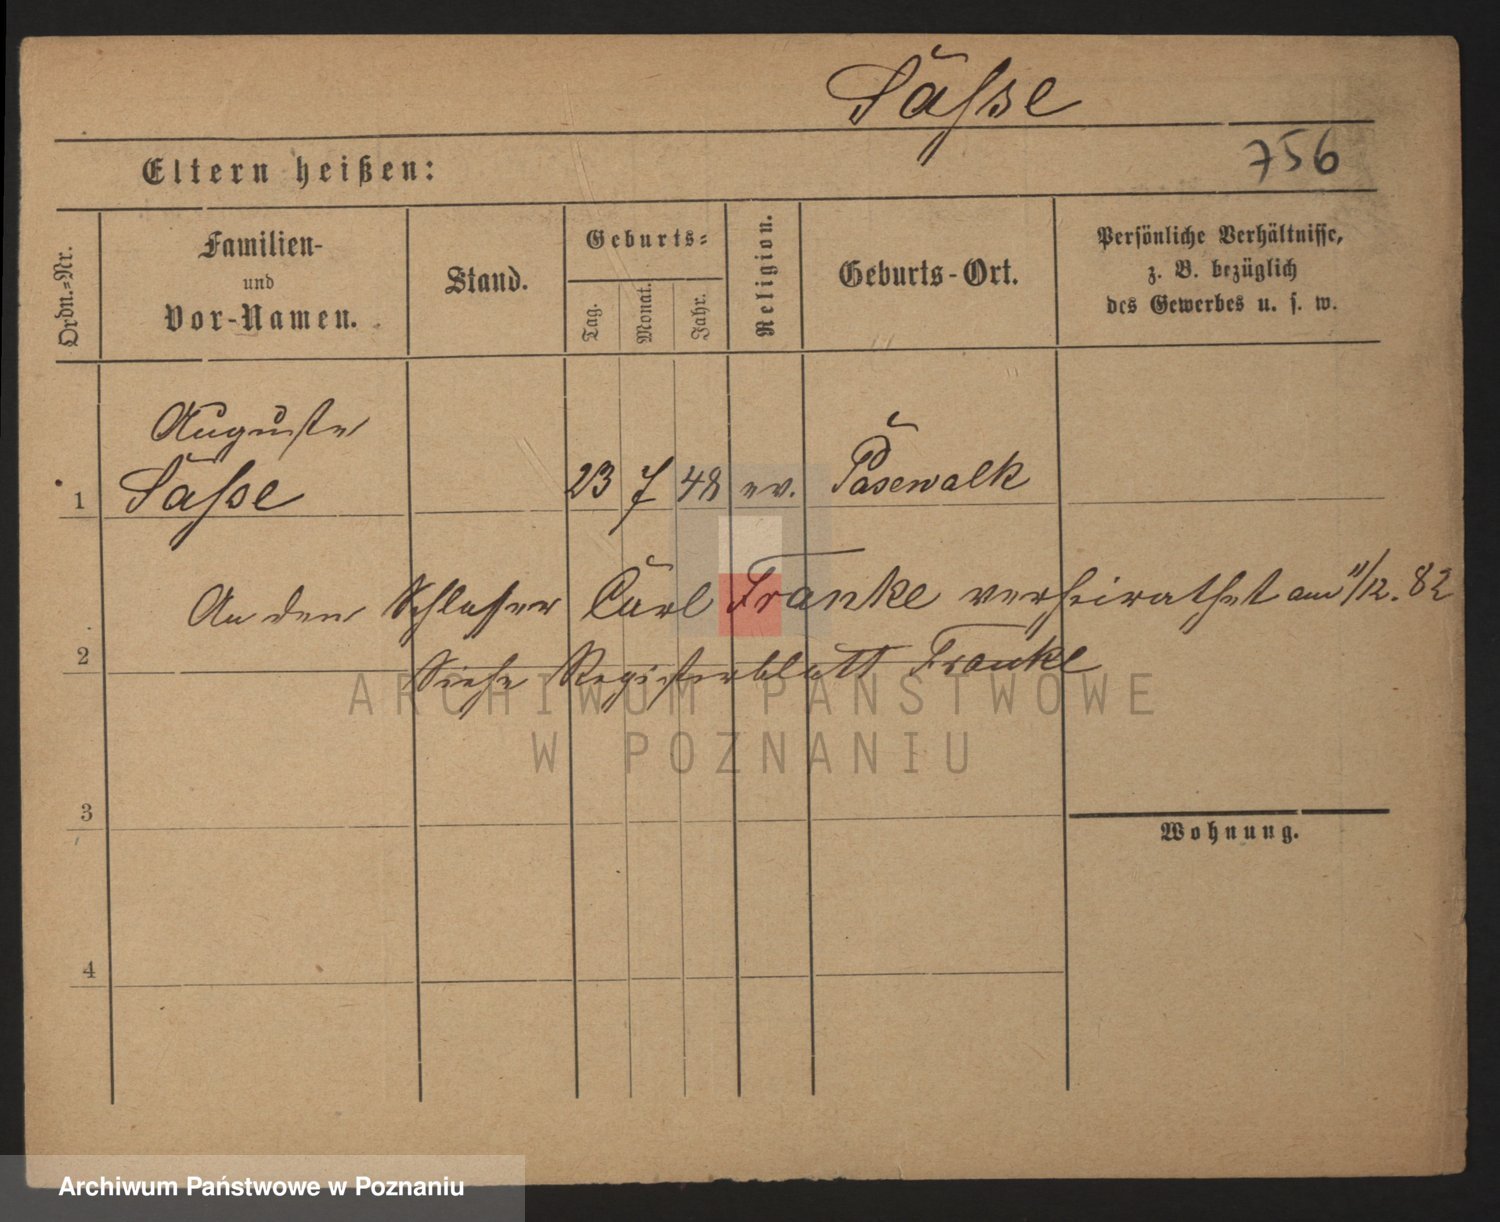 Saſse
756
Eltern heißen:
Ordn.-Nr.
Familien-
und
Vor-Namen.
Stand.
Geburts-
Tag.
Monat.
Jahr.
Religion.
Geburts-Ort.
Persönliche Verhältnisse,
z. B. bezüglich
des Gewerbes u. s. w.
Auguste
1 Saſse 23 7 48 ev. Pasewalk
An den Schlosser Carl Franke verheirathet am 11/12. 82
2
Siehe Registerblatt Franke
ARCHIWUM PAŃSTWOWE
W POZNANIU
3
Wohnung.
4
Archiwum Państwowe w Poznaniu